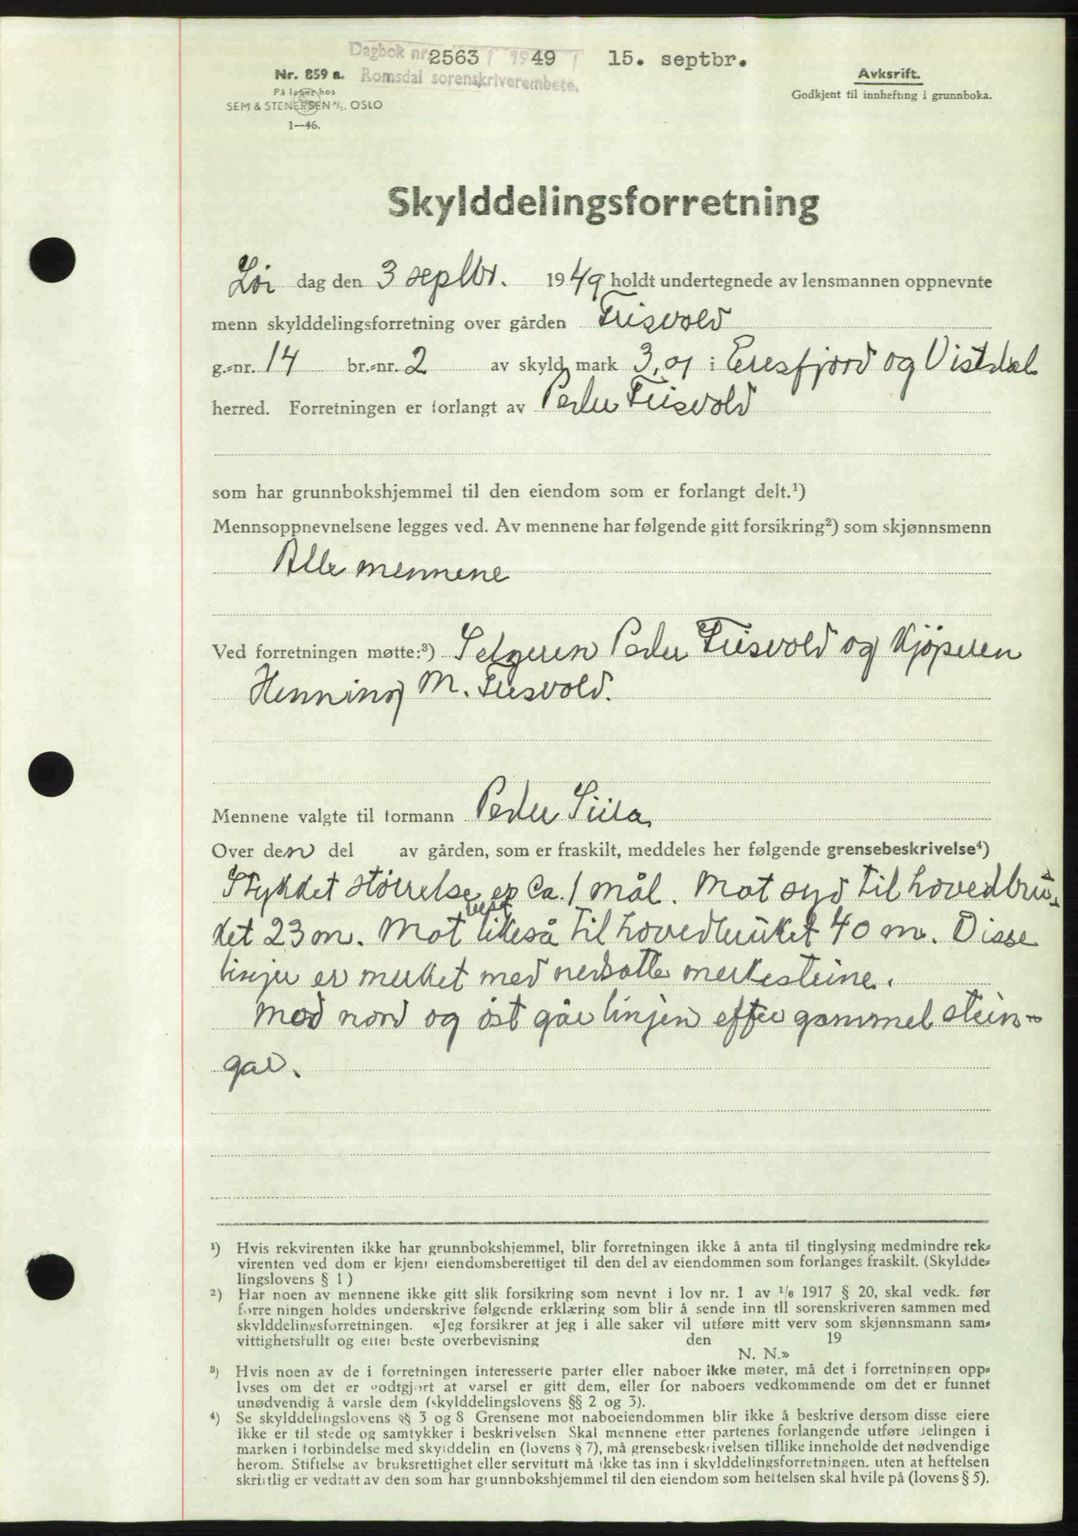 Dagbok nr. 2563 / 1949 / 15. septbr.
Romsdal sorenskriverembete.
Nr. 859 a.
På lager hos
SEM & STENERSEN A/S. OSLO
1—46.
Avkskrift.
Godkjent til innhefting i grunnboka.
Skylddelingsforretning
Lør dag den 3 septbr. 1949 holdt undertegnede av lensmannen oppnevnte
menn skylddelingsforretning over gården Frisvold
g.-nr. 14 br.-nr. 2 av skyld mark 3,01 i Eresfjord og Vistdal
herred. Forretningen er forlangt av Peder Frisvold
som har grunnbokshjemmel til den eiendom som er forlangt delt.¹)
Mennsoppnevnelsene legges ved. Av mennene har følgende gitt forsikring²) som skjønnsmenn
Alle mennene
Ved forretningen møtte:³) Selgeren Peder Frisvold og kjøperen
Henning M. Frisvold.
Mennene valgte til formann Peder Siira
Over den del av gården, som er fraskilt, meddeles her følgende grensebeskrivelse⁴)
Stykket størrelse er ca. 1 mål. Mot syd til hovedbru-
ket 23 m. Mot vest likeså til hovedbruket 40 m. Disse
linjer er merket med nedsatte merkesteine.
Mod nord og øst går linjen efter gammel stein-
gar.
¹) Hvis rekvirenten ikke har grunnbokshjemmel, blir forretningen ikke å anta til tinglysing medmindre rek-
virenten ved dom er kjent eiendomsberettiget til den del av eiendommen som forlanges fraskilt. (Skyldde-
lingslovens § 1)
²) Har noen av mennene ikke gitt slik forsikring som nevnt i lov nr. 1 av 1/6 1917 § 20, skal vedk. før
forretningen holdes underskrive følgende erklæring som blir å sende inn til sorenskriveren sammen med
skylddelingsforretningen. «Jeg forsikrer at jeg i alle saker vil utføre mitt verv som skjønnsmann sam-
vittighetsfullt og etter beste overbevisning den 19
N. N.»
³) Hvis noen av de i forretningen interesserte parter eller naboer ikke møter, må det i forretningen opp-
lyses om det er godtgjort at varsel er gitt dem, eller for naboers vedkommende om det er funnet
unødvendig å varsle dem (skylddelingslovens §§ 2 og 3).
⁴) Se skylddelingslovens §§ 3 og 8 Grensene mot naboeiendommen blir ikke å beskrive dersom disse eiere
ikke er til stede og samtykker i beskrivelsen Skal mennene etter partenes forlangende utføre delingen i
marken i forbindelse med skylddelingen (lovens § 7), må grensebeskrivelsen tillike inneholde det nødvendige
herom. Stiftelse av bruksrettighet eller servitutt må ikke tas inn i skylddelingsforretningen, uten at heftelsen
skriftlig er vedtatt av den som har grunnbokshjemmel til den eiendom som heftelsen skal hvile på (lovens § 5).